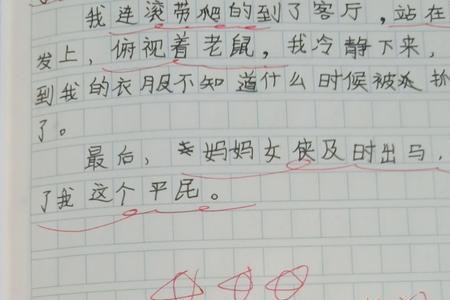 我连滚带爬的到了客厅,站在
发上,俯视着老鼠,我冷静下来,
到我的衣服不知道什么时候被抓
了。
最后,妈妈女侠及时出马,
了我这个平民。